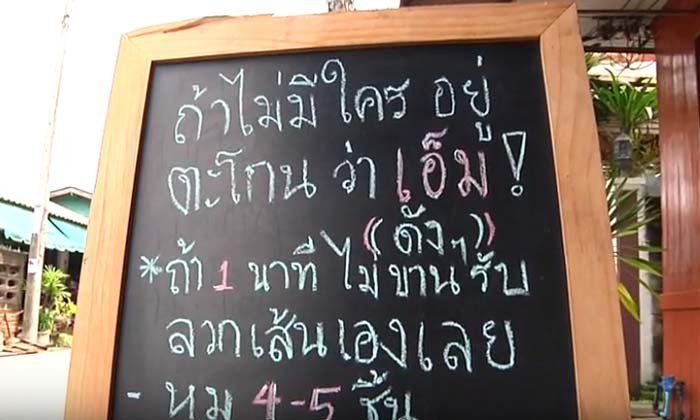 ถ้าไม่มีใคร อยู่
ตะโกน ว่า เอ็ม !
((ดังๆ))
*ถ้า 1 นาที ไม่ขานรับ
ลวกเส้นเองเลย
- หมู 4-5 ชิ้น